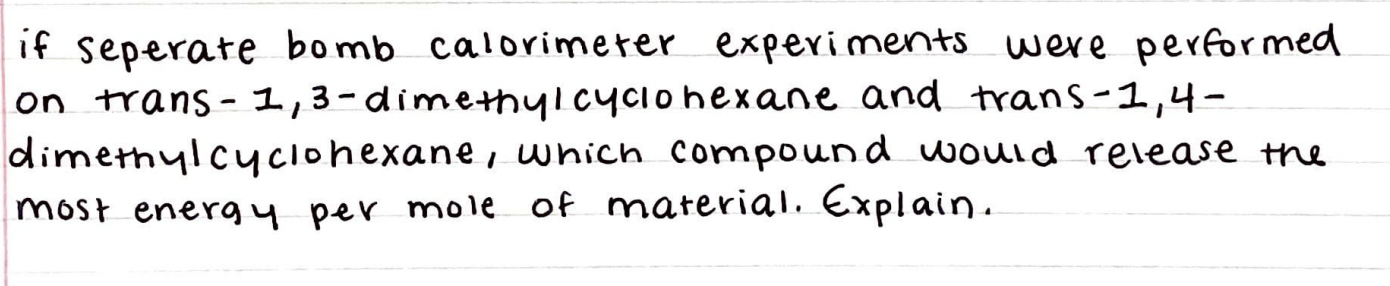 if seperate bomb calorimeter experiments were performed
on trans-1,3-dimethylcyclohexane and trans-1,4-
dimethylcyclohexane, which compound would release the
most energy per mole of material. Explain.